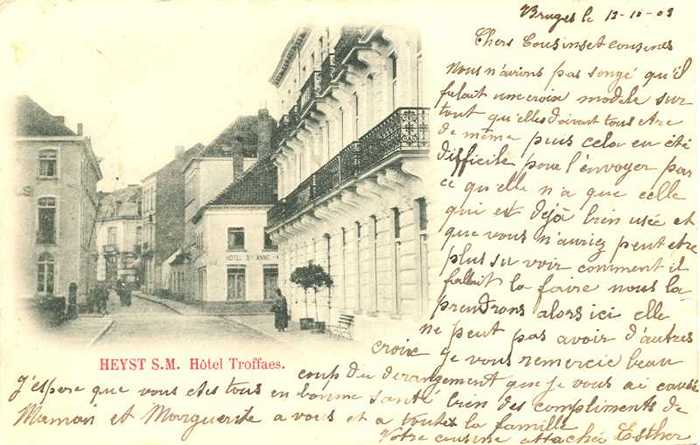 Bruges le 13-10-03
Chers Cousins et cousines
Nous n'avions pas songé qu'il
falait une croix modele sur
tout qu'elles doivent tous etre
de même puis cela eu été
difficile pour l'envoyer par
ce qu'elle n'a que celle
qui est déjà bien usée et
que vous n'auriez peut etre
plus su voir comment il
fallait la faire nous la
prendrons alors ici elle
ne peut pas avoir d'autres
croix je vous remercie beau
coup du derangement que je vous ai causé
J'espere que vous etes tous en bonne santé bien des compliments de
Maman et Marguerite a vous et a toute la famille
Votre cusine attachée Esther
HOTEL Ste ANNE
HEYST S.M. Hôtel Troffaes.